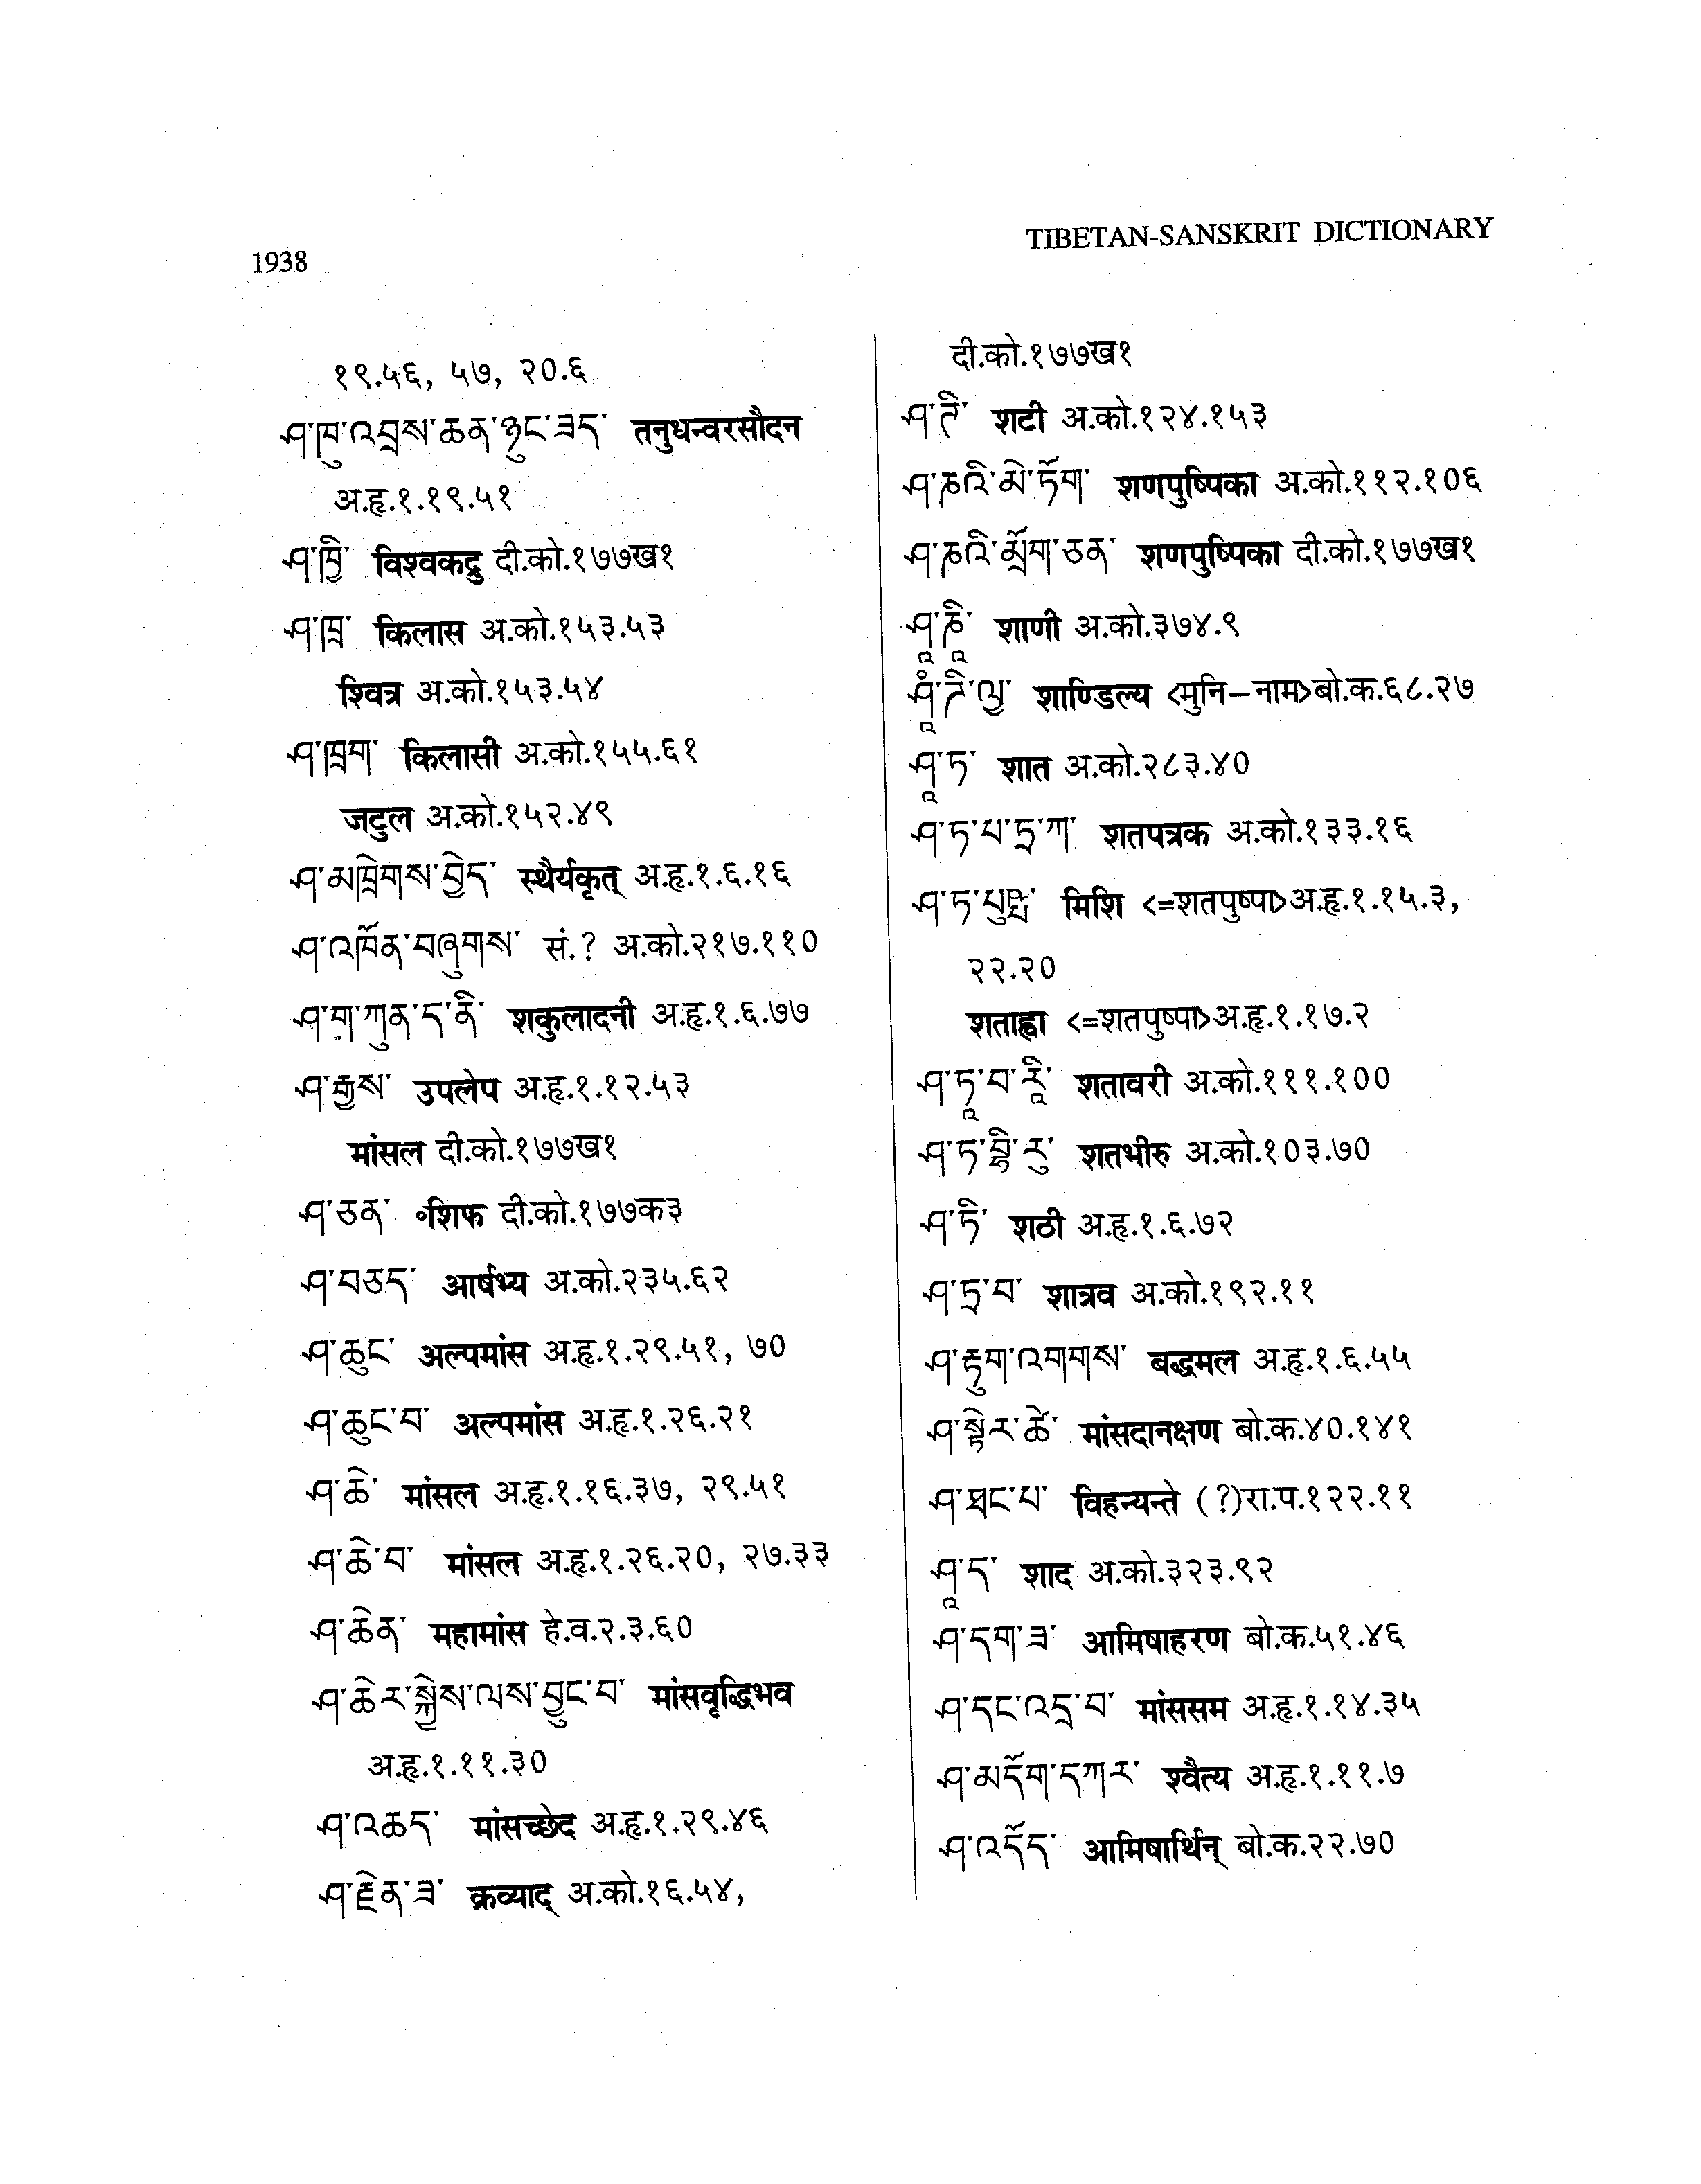 1938
TIBETAN-SANSKRIT DICTIONARY
१९.५६, ५७, २०.६
ཤ་ཁུ་འབྲས་ཆན་ཉུང་ཟད་ तनुधन्वरसौदन
अ.हृ.१.१९.५१
ཤ་ཁྱི་ विश्वकद्रु दी.को.१७७ख१
ཤ་ཁྲ་ किलास अ.को.१५३.५३
श्वित्र अ.को.१५३.५४
ཤ་ཁྲག་ किलासी अ.को.१५५.६१
जटुल अ.को.१५२.४९
ཤ་མཁྲེགས་བྱེད་ स्थैर्यकृत् अ.हृ.१.६.१६
ཤ་འཁོན་བཞུགས་ सं.? अ.को.२१७.११०
ཤ་ཀུན་ད་ནི་ शकुलादनी अ.हृ.१.६.७७
ཤ་རྒྱས་ उपलेप अ.हृ.१.१२.५३
मांसल दी.को.१७७ख१
ཤ་ཅན་ ॰शिफ दी.को.१७७क३
ཤ་བཅད་ आर्षभ्य अ.को.२३५.६२
ཤ་ཆུང་ अल्पमांस अ.हृ.१.२९.५१, ७०
ཤ་ཆུང་བ་ अल्पमांस अ.हृ.१.२६.२१
ཤ་ཆེ་ मांसल अ.हृ.१.१६.३७, २९.५१
ཤ་ཆེ་བ་ मांसल अ.हृ.१.२६.२०, २७.३३
ཤ་ཆེན་ महामांस हे.व.२.३.६०
ཤ་ཆེར་སྐྱེས་ལས་བྱུང་བ་ मांसवृद्धिभव
अ.हृ.१.११.३०
ཤ་འཆད་ मांसच्छेद अ.हृ.१.२९.४६
ཤ་རྗེན་ཟ་ क्रव्याद् अ.को.१६.५४,
दी.को.१७७ख१
ཤ་ཊི་ शटी अ.को.१२४.१५३
ཤ་ཎའི་མེ་ཏོག་ शणपुष्पिका अ.को.११२.१०६
ཤ་ཎའི་མྲོག་ཅན་ शणपुष्पिका दी.को.१७७ख१
ཤཱ་ཎཱི་ शाणी अ.को.३७४.९
ཤཱཾ་ཌི་ལྱ་ शाण्डिल्य <मुनि–नाम>बो.क.६८.२७
ཤཱ་ཏ་ शात अ.को.२८३.४०
ཤ་ཏ་པ་ཏྲ་ཀ་ शतपत्रक अ.को.१३३.१६
ཤ་ཏ་པུཥྤ་ मिशि <=शतपुष्पा>अ.हृ.१.१५.३,
२२.२०
शताह्वा <=शतपुष्पा>अ.हृ.१.१७.२
ཤ་ཏཱ་བ་རཱི་ शतावरी अ.को.१११.१००
ཤ་ཏ་བྷི་རུ་ शतभीरु अ.को.१०३.७०
ཤ་ཏི་ शठी अ.हृ.१.६.७२
ཤ་ཏྲ་བ་ शात्रव अ.को.१९२.११
ཤ་རྟུག་འགགས་ बद्धमल अ.हृ.१.६.५५
ཤ་སྟེར་ཚེ་ मांसदानक्षण बो.क.४०.१४१
ཤ་ཐང་པ་ विहन्यन्ते (?)रा.प.१२२.११
ཤཱ་ད་ शाद अ.को.३२३.९२
ཤ་དག་ཟ་ आमिषाहरण बो.क.५१.४६
ཤ་དང་འདྲ་བ་ मांससम अ.हृ.१.१४.३५
ཤ་མདོག་དཀར་ श्वैत्य अ.हृ.१.११.७
ཤ་འདོད་ आमिषार्थिन् बो.क.२२.७०